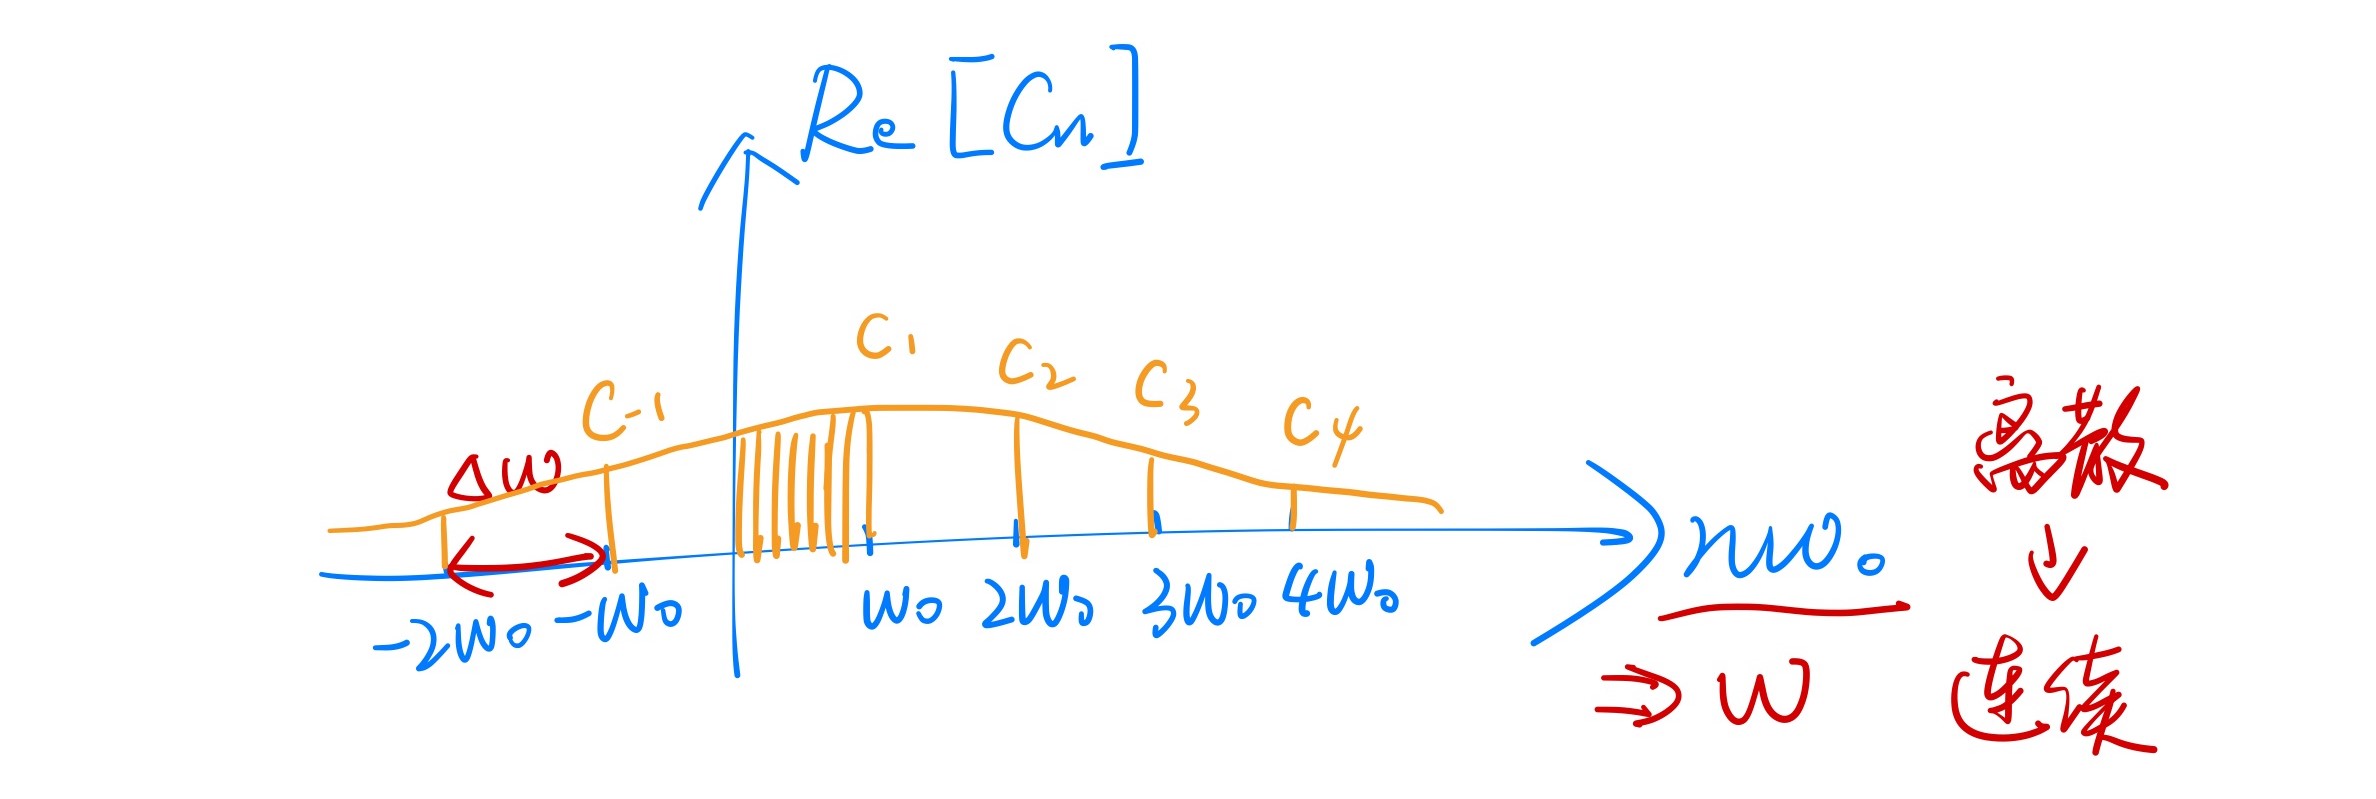 Re[Cn]
C-1
C1
C2
C3
C4
Δω
-2ω₀
-ω₀
ω₀
2ω₀
3ω₀
4ω₀
nω₀
⇒ ω
离散
↓
连续